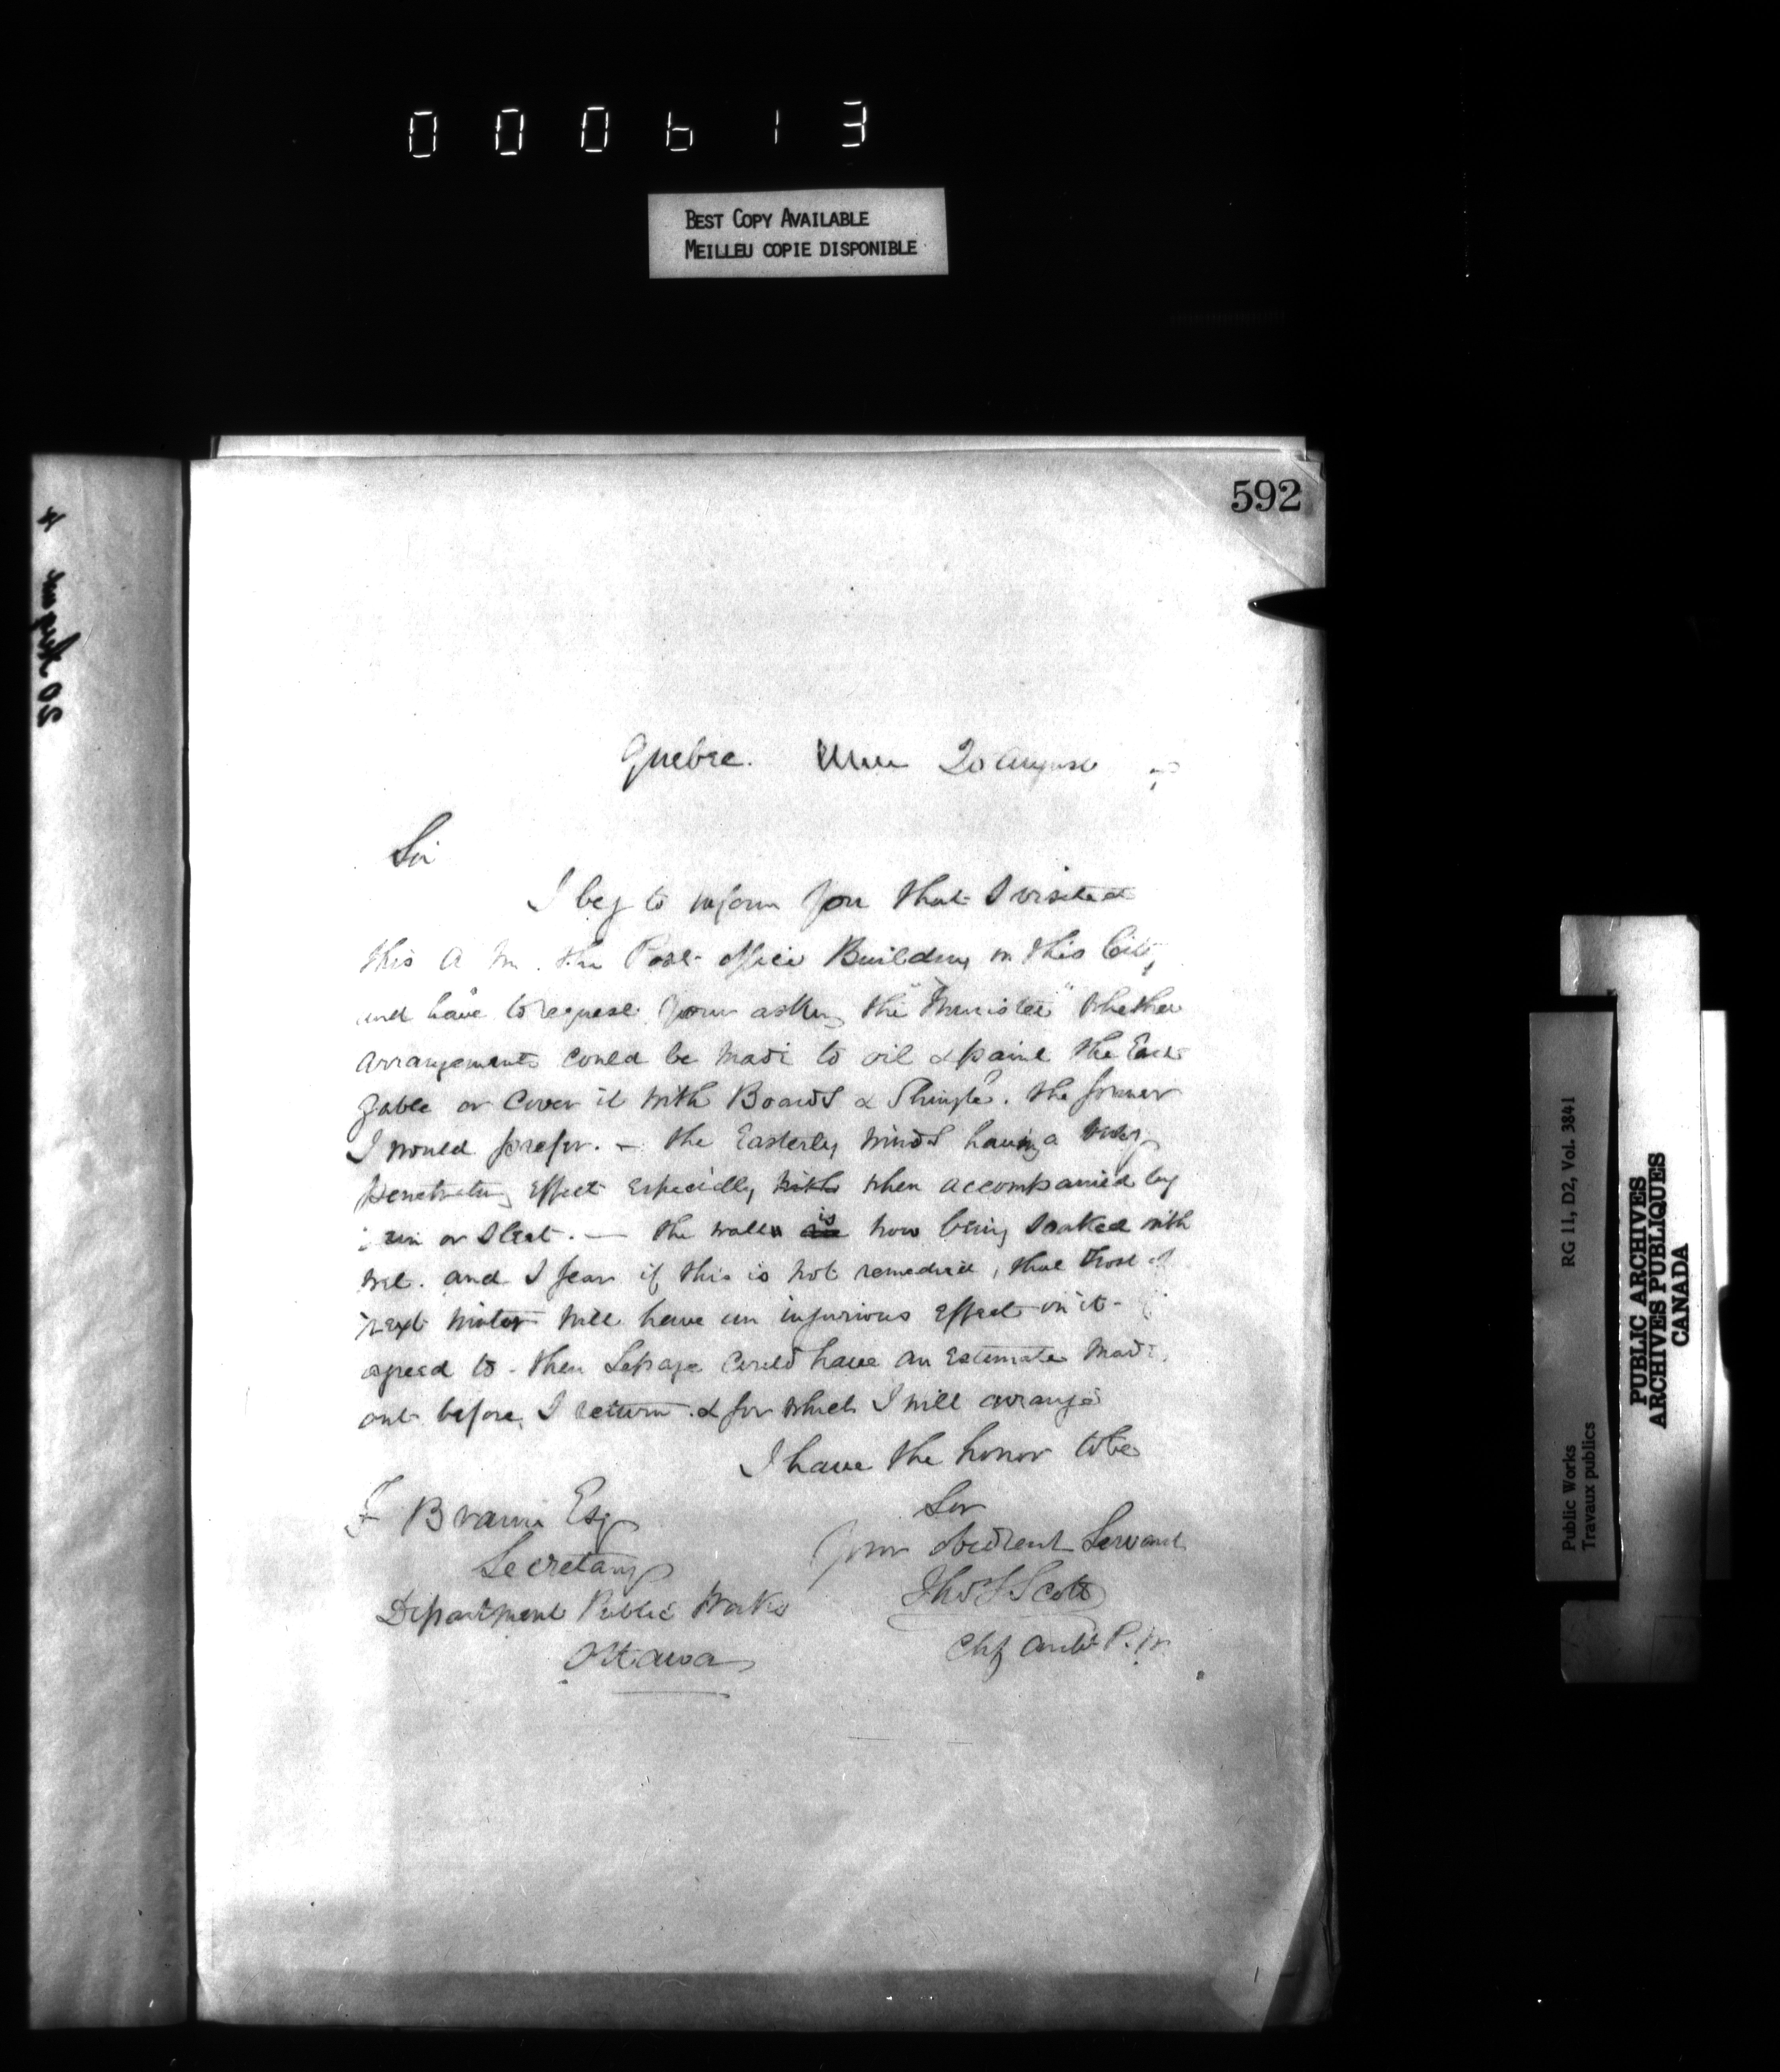 000613
BEST COPY AVAILABLE
MEILLEU COPIE DISPONIBLE
592
20 August
Quebec. 20 August
Sir
I beg to inform you that I visited
this A M. the Post-office Building in this City,
and have to request your asking the "Minister" whether
arrangements could be made to oil & paint the East
gable or cover it with Boards & Shingle. the former
I would prefer. – the Easterly winds having a very
penetrating effect especially with when accompanied by
rain or sleet. — the walls is now being soaked with
wet. and I fear if this is not remedied, that frost of
next winter will have an injurious effect on it-
agreed to - then Lepage could have an Estimate made
out before I return. & for which I will arrange
I have the honor to be
Sir
Your obedient Servant
Thos S Scott
Chf Archt P. W.
F Braun Esq
Secretary
Department Public Works
Ottawa
Public Works
Travaux publics
RG 11, D2, Vol. 3841
PUBLIC ARCHIVES
ARCHIVES PUBLIQUES
CANADA